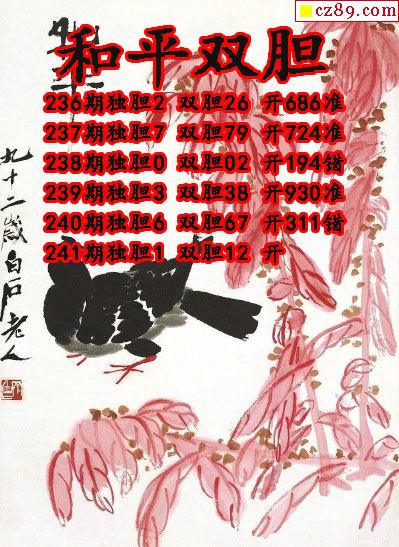 cz89.com
和平双胆
236期独胆2 双胆26 开686准
237期独胆7 双胆79 开724准
238期独胆0 双胆02 开194错
239期独胆3 双胆38 开930准
240期独胆6 双胆67 开311错
241期独胆1 双胆12 开
九十二岁白石老人